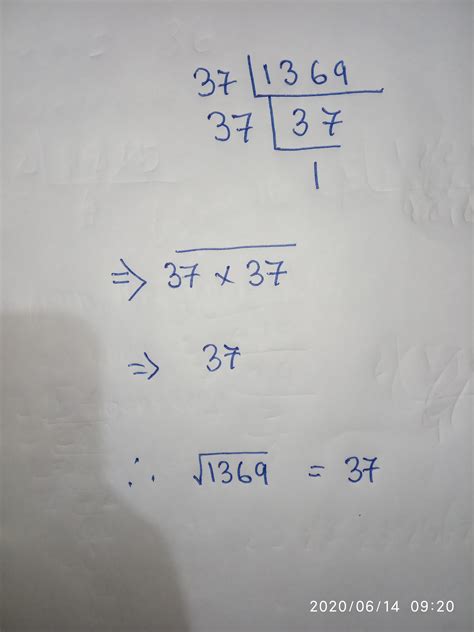 37 | 1369
37 | 37
1
⇒ 37 × 37
⇒ 37
∴ √1369 = 37
2020/06/14 09:20